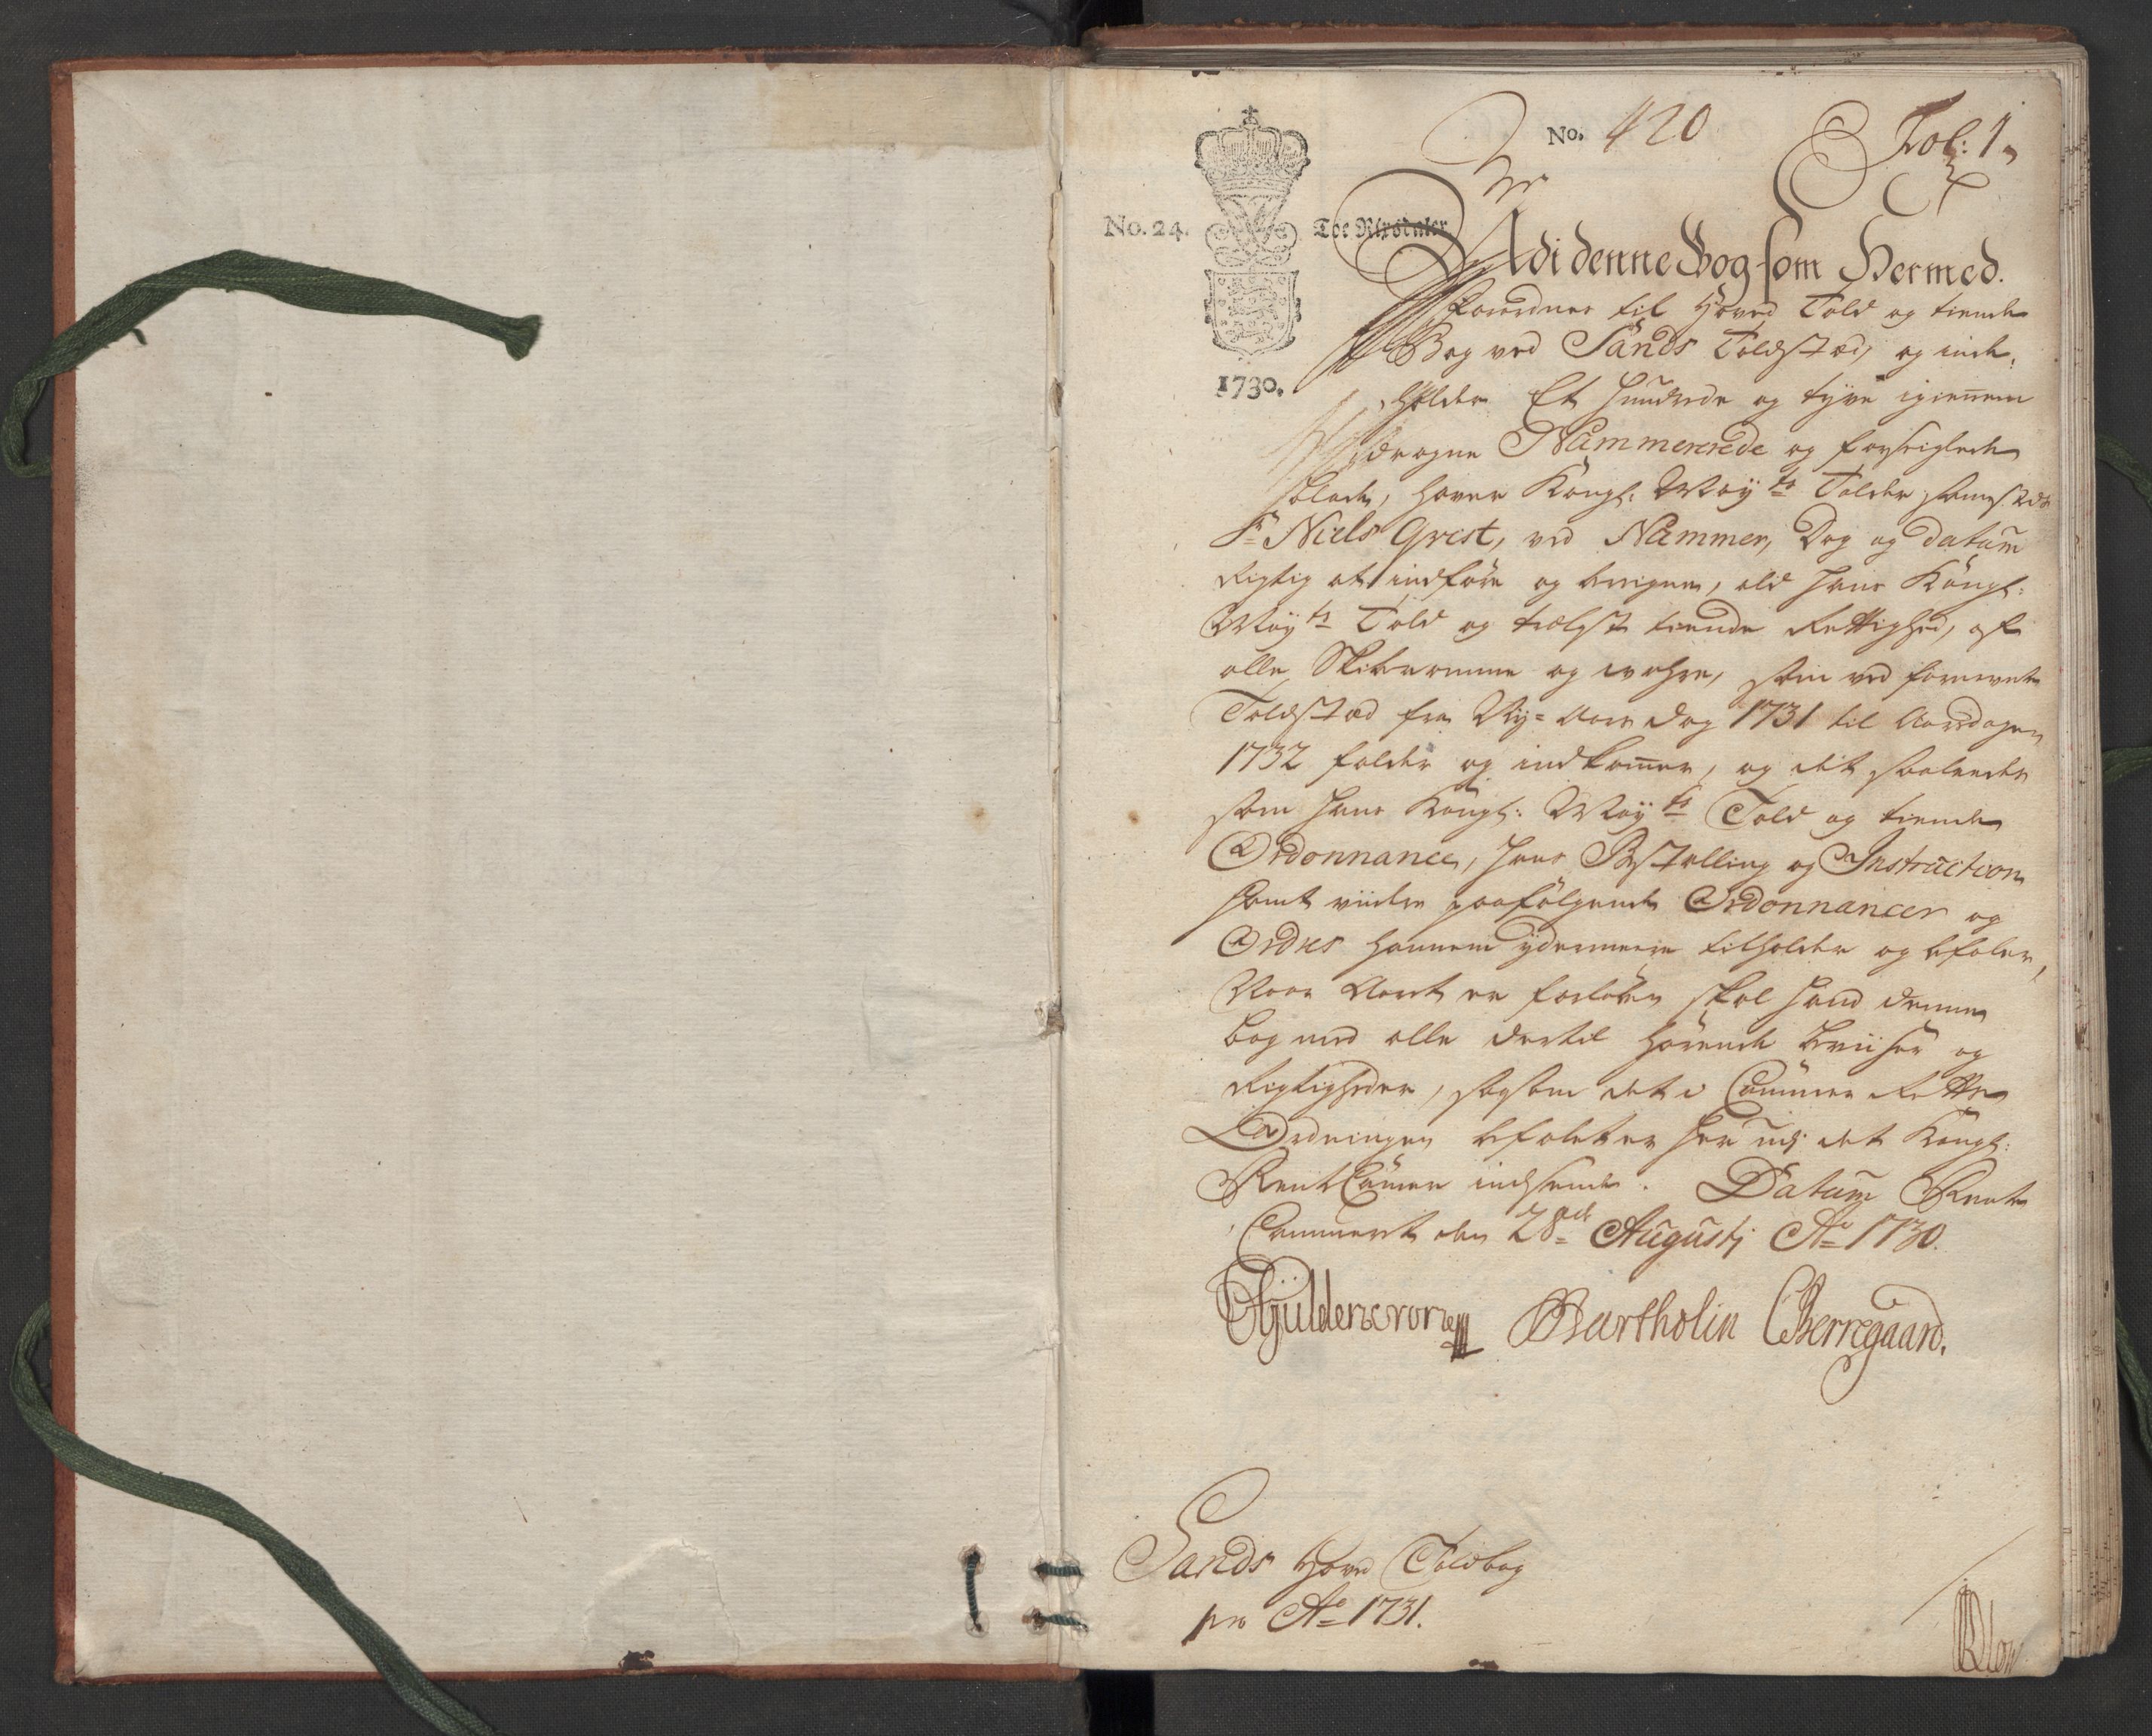 No. 420
Fol: 1.
No. 24.
Toe Rixsdaler
1730.
Udi denne Bog som Hermed
forordnes til Hoved Told og tiende
Bog ved Sands Toldsted, og inde-
holder Et hundrede og tyve igiennem
dragne Nummererede og forseiglede
blade, haver Kongl: May:ts Tolder sammesteds
Sr Niels Qvist, ved Nummer, Dag og datum
rigtig at indføre og beregne, ald hans Kongl:
May:ts Told og tiende Rettighed, af
alle Skibsrumme og vahre, som ved fornevnte
Toldsted fra Ny-Aars dag 1731 til Aarsdagen
1732 falder og indkommer, og det saaledes
som hans Kongl: May:ts Told og tiende
Ordonnance, hans Bestalling og Instruction
samt videre paafølgende Ordonnancer og
Ordres hannem ydermeere tilholder og befaler,
Naar Aaret er forløben skal hand denne
bog med alle dertil hørende beviiser og
Rigtigheder, saasom det i Cammer Rettens
Ordningen befalet er her udj det Kongl:
Rent Cammer indsende. Datum Rente
Cammeret den 28de Augustj Ao 1730.
Gÿldencrone Bartholin CBerregaard.
Sands Hoved Toldbog
pro Ao 1731.